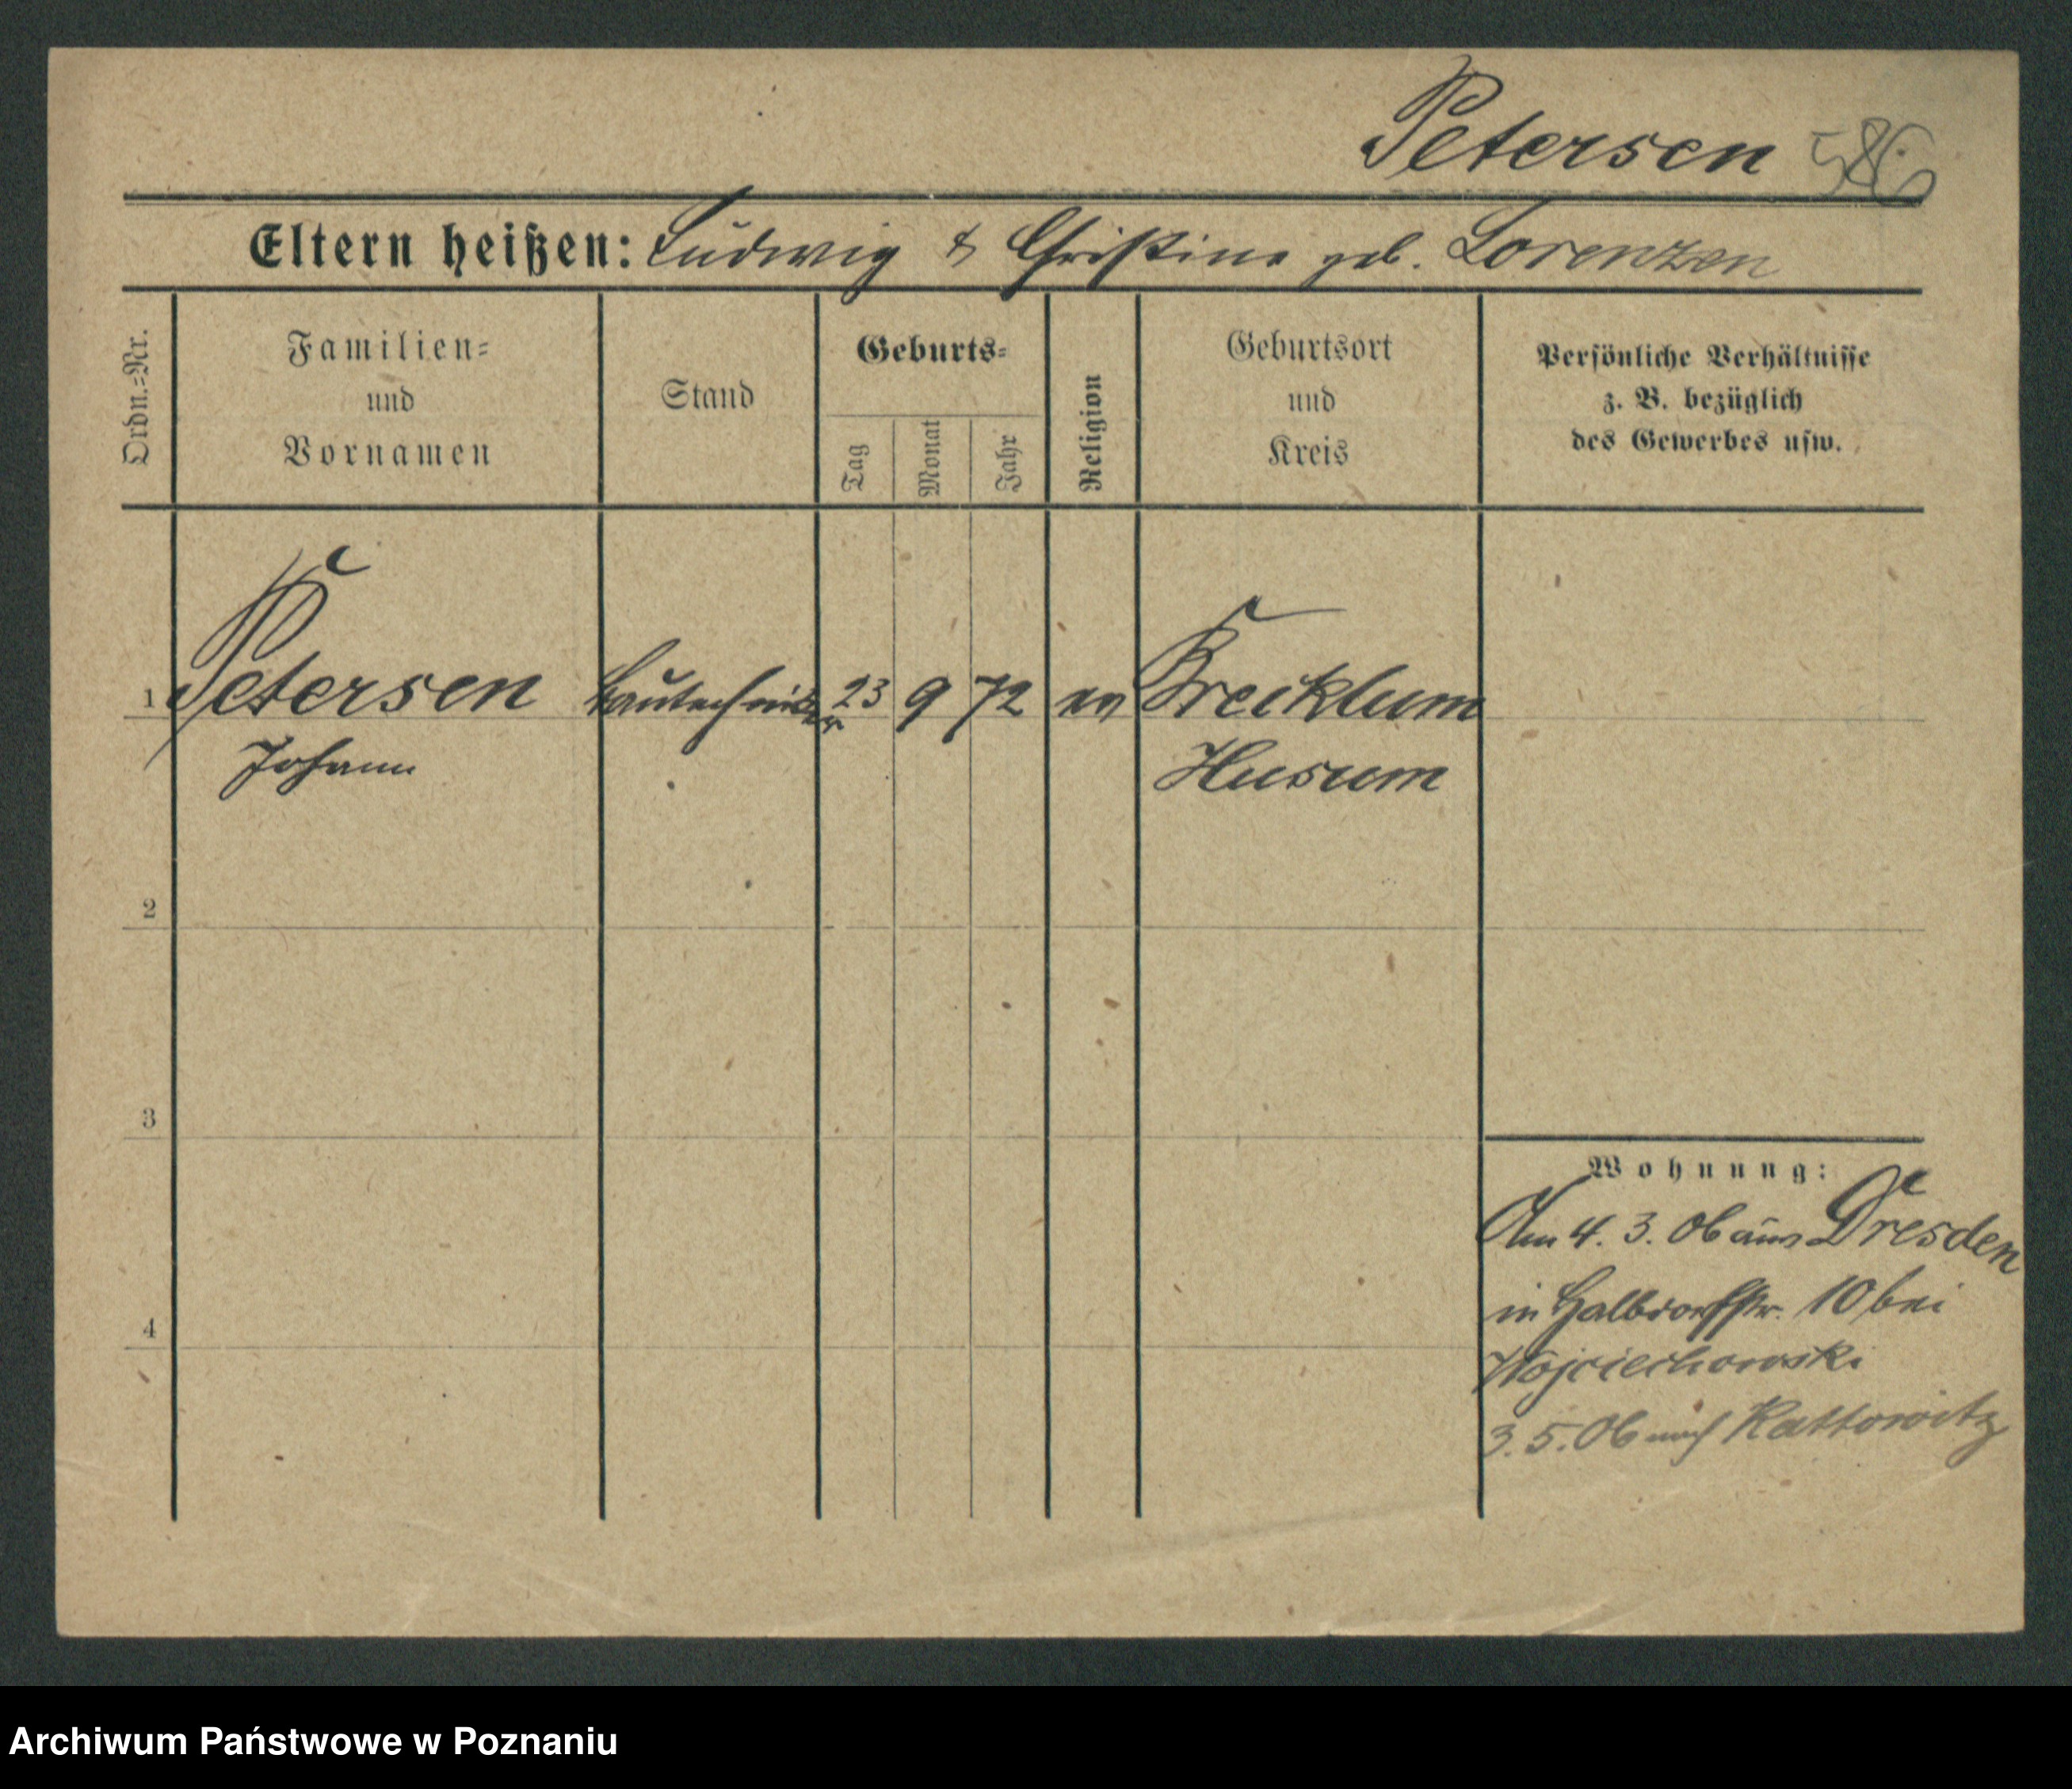 Petersen 586
Eltern heißen: Ludwig & Christine geb. Lorenzen
Ordn.=Nr.
Familien=
und
Vornamen
Stand
Geburts=
Tag
Monat
Jahr
Religion
Geburtsort
und
Kreis
Persönliche Verhältnisse
z. B. bezüglich
des Gewerbes usw.
1 Petersen Bautechniker 23 9 72 ev Brecklum
Johann Husum
2
3
4
Wohnung:
Am 4. 3. 06 aus Dresden
in Halbdorfstr. 10 bei
Wojciechowski
3. 5. 06 nach Kattowitz
Archiwum Państwowe w Poznaniu